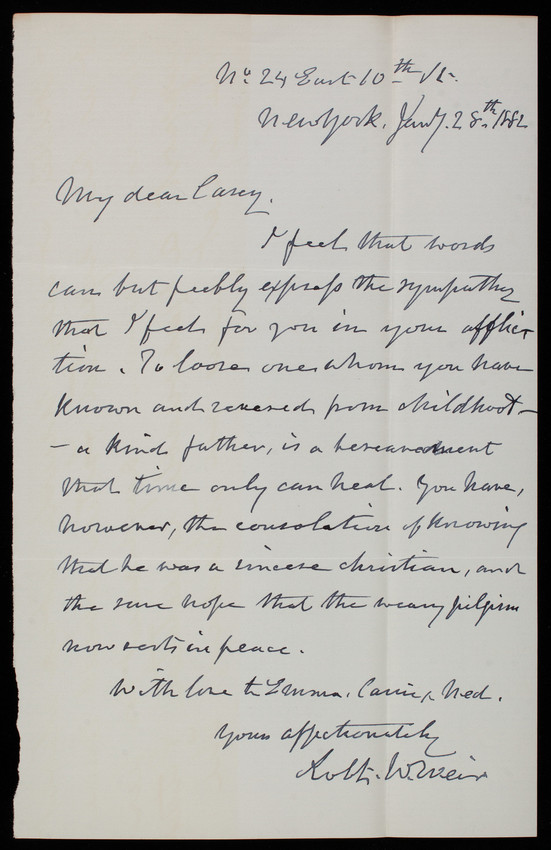 No. 24 East 10th St.
New York, Jany. 28th, 1882
My dear Casey,
I feel that words
can but feebly express the sympathy
that I feel for you in your afflic-
tion. To loose one whom you have
known and revered from childhood –
– a kind father, is a bereavement
that time only can heal. You have,
however, the consolation of knowing
that he was a sincere christian, and
the sure hope that the weary pilgrim
now rests in peace.
With love to Emma, Carrie & Ned.
Yours affectionately
Robt. W. Weir